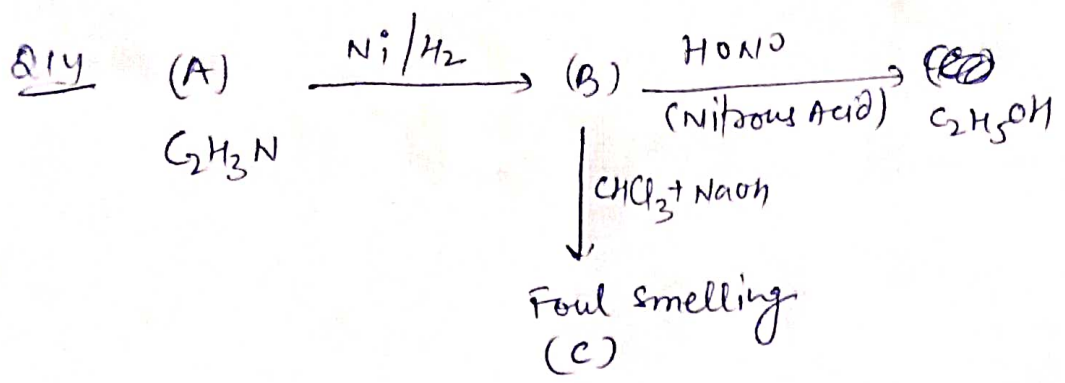 Q14 (A) Ni/H2 (B) HONO
(Nitrous Acid) C2H5OH
C2H3N
CHCl3 + NaOH
Foul smelling
(C)